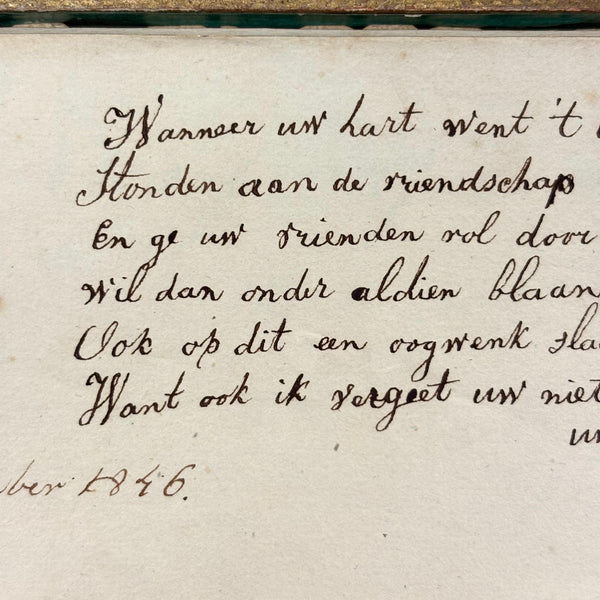 Wanneer uw hart went 't
Stonden aan de vriendschap
En ge uw vrienden rol door
wil dan onder aldien blaan
Ook op dit een oogwenk sla
Want ook ik vergeet uw niet
ber 1846.